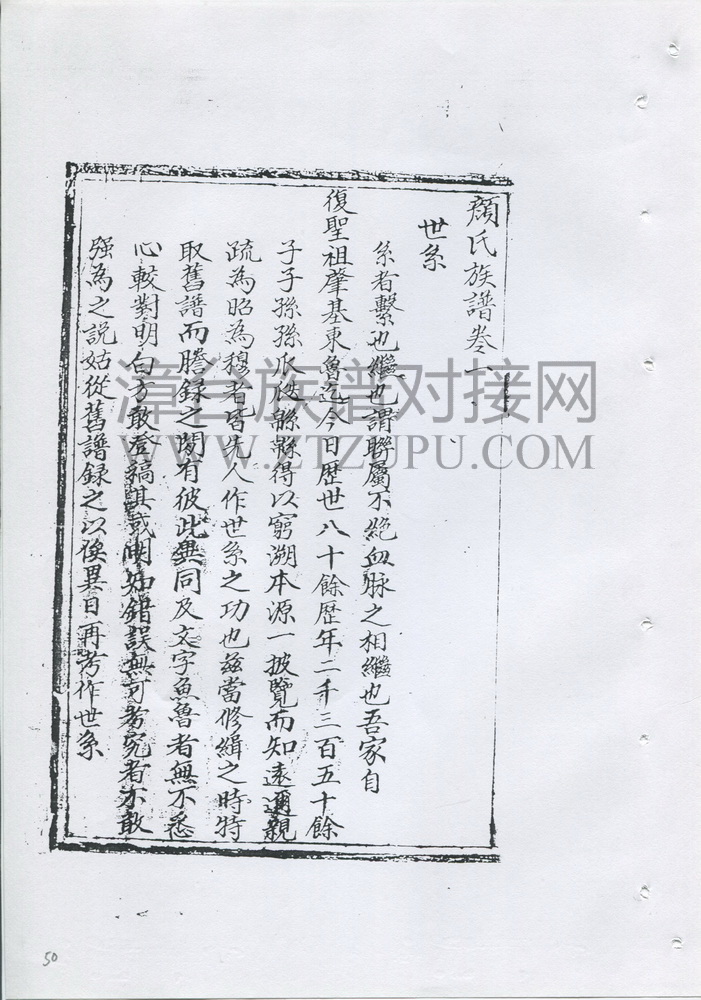 顏氏族譜卷一
世系
系者繫也繼也謂聯屬不絕血脉之相繼也吾家自
復聖祖肇基東魯迄今日歷世八十餘歷年二千三百五十餘
子子孫孫瓜瓞緜緜得以窮溯本源一披覽而知遠邇親
疏為昭為穆者皆先人作世系之功也茲當修緝之時特
取舊譜而謄録之間有彼此異同及文字魚魯者無不悉
心較對明白方敢登稿其或明知錯誤無可考究者不敢
强為之說姑從舊譜録之以俟異日再考作世系
漳台族谱对接网
WWW.ZTZUPU.COM
50